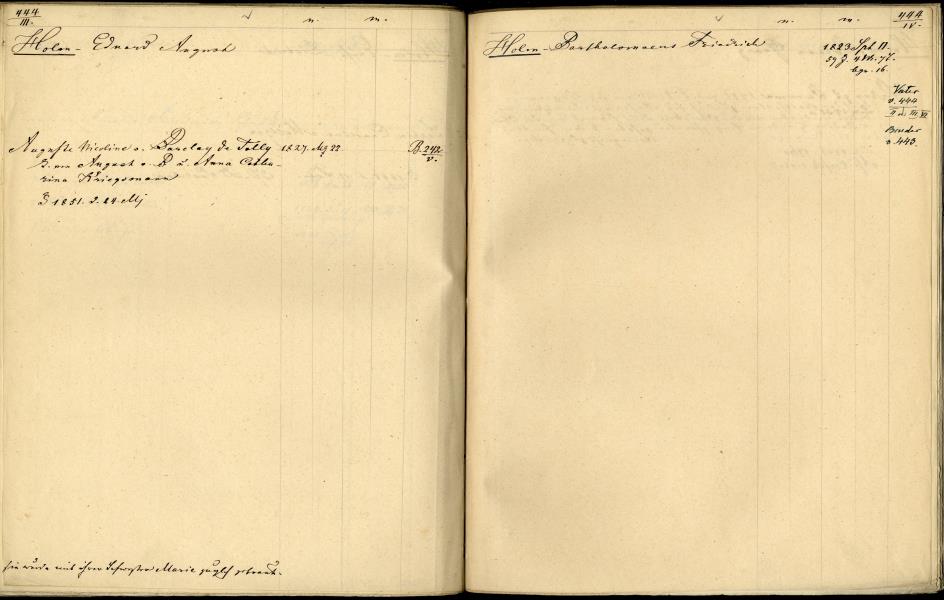 444
III.
n. m.
Holm- Eduard August
Auguste Nicoline v. Barclay de Tolly 1827. Aug 22 B. 242
v.
T. von August v. B u. Anna Catha-
rina Kriegsmann
1851. d. 24. Mj
sie wurde mit ihrer Schwester Marie zugleich getraut.
n. m.
444
IV.
Holm- Bartholomaeus Friedrich
1823. Spt. 11.
59 J. 4 M. 7 T.
bgr. 16.
Vater
v. 444
II u. III. VI
Bruder
v. 445.